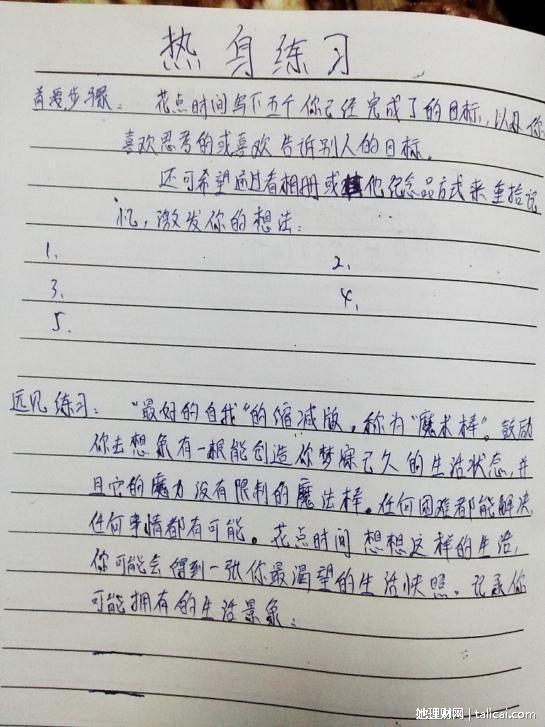 热身练习
首要步骤：花点时间写下五个你已经完成了的目标，以及你
喜欢思考的或喜欢告诉别人的目标。
还可希望通过看相册或其他纪念品方式来重拾记
忆，激发你的想法：
1、 2、
3、 4、
5、
远见练习："最好的自我"的缩减版，称为"魔术棒"。鼓励
你去想象有一根能创造你梦寐已久的生活状态，并
且它的魔力没有限制的魔法棒。任何困难都能解决，
任何事情都有可能。花点时间想想这样的生活，
你可能会得到一张你最渴望的生活快照。记录你
可能拥有的生活景象：
她理财网 | talicai.com